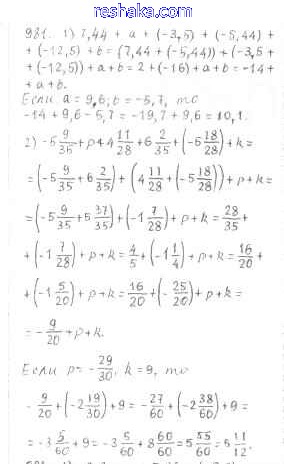 reshaka.com
981. 1) 7,44 + a + (-3,5) + (-5,44) +
+ (-12,5) + b = (7,44 + (-5,44)) + (-3,5 +
+ (-12,5)) + a + b = 2 + (-16) + a + b = -14 +
+ a + b.
Если a = 9,6; b = -5,7, то
-14 + 9,6 - 5,7 = -19,7 + 9,6 = 10,1.
2) -5 9/35 + p + 4 11/28 + 6 2/35 + (-5 18/28) + k =
= (-5 9/35 + 6 2/35) + (4 11/28 + (-5 18/28)) + p + k =
= (-5 9/35 + 5 37/35) + (-1 7/28) + p + k = 28/35 +
+ (-1 7/28) + p + k = 4/5 + (-1 1/4) + p + k = 16/20 +
+ (-1 5/20) + p + k = 16/20 + (-25/20) + p + k =
= -9/20 + p + k.
Если p = -29/30, k = 9, то
-9/20 + (-2 19/30) + 9 = -27/60 + (-2 38/60) + 9 =
= -3 5/60 + 9 = -3 5/60 + 8 60/60 = 5 55/60 = 5 11/12.